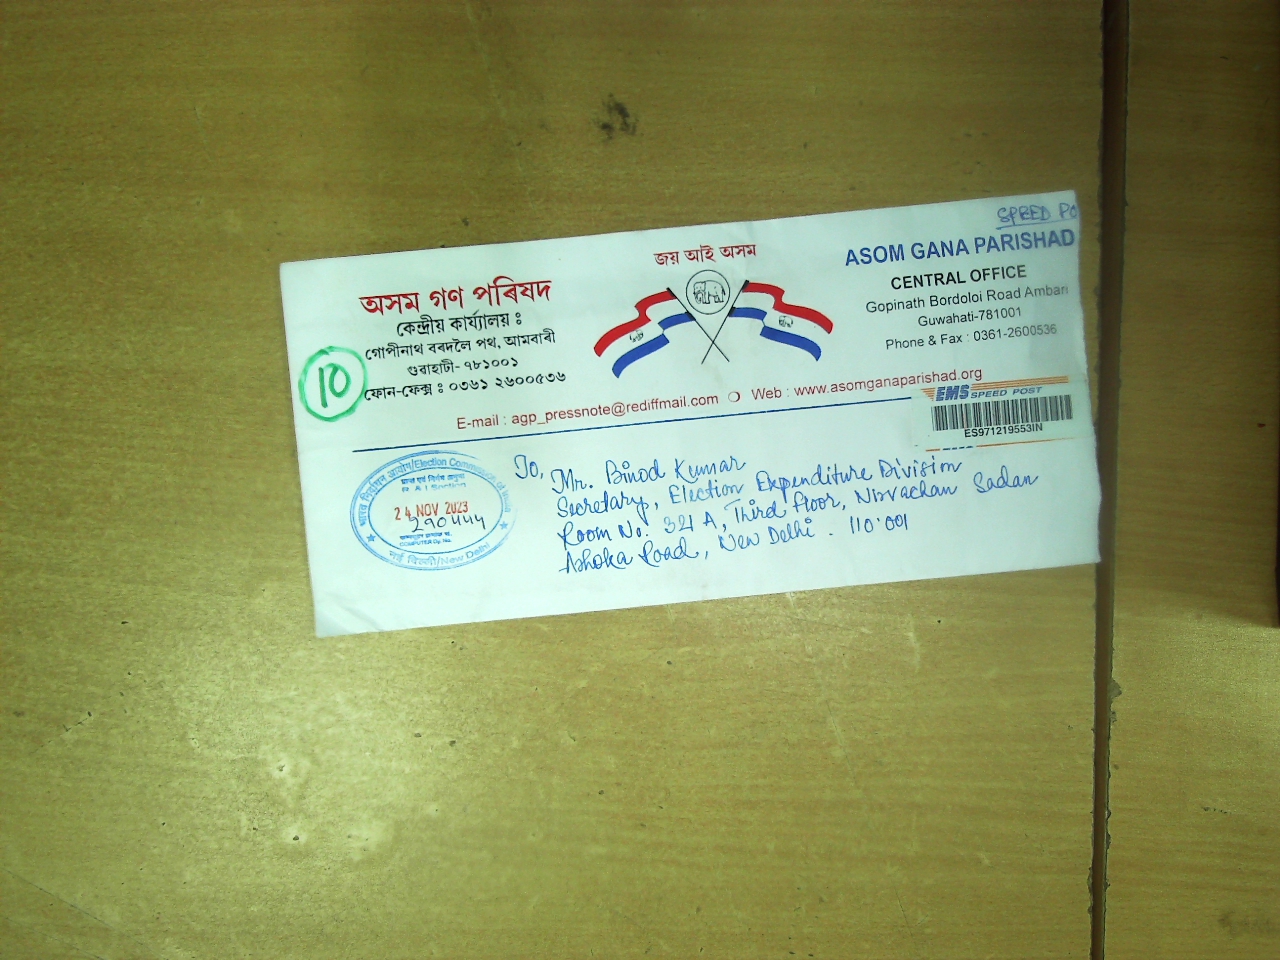 SPEED PO
অসম গণ পৰিষদ
কেন্দ্ৰীয় কাৰ্য্যালয় ঃ
গোপীনাথ বৰদলৈ পথ, আমবাৰী
গুৱাহাটী- ৭৮১০০১
ফোন-ফেক্স ঃ ০৩৬১ ২৬০০৫৩৬
জয় আই অসম
ASOM GANA PARISHAD
CENTRAL OFFICE
Gopinath Bordoloi Road Ambari
Guwahati-781001
Phone & Fax : 0361-2600536
10
E-mail : agp_pressnote@rediffmail.com ❍ Web : www.asomganaparishad.org
EMS SPEED POST
ES971219553IN
भारत निर्वाचन आयोग/Election Commission of India
R & I Section
24 NOV 2023
290444
COMPUTER Dy. No.
नई दिल्ली/New Delhi
To,
Mr. Binod Kumar
Secretary, Election Expenditure Division
Room No. 321 A, Third Floor, Nirvachan Sadan
Ashoka Road, New Delhi - 110.001